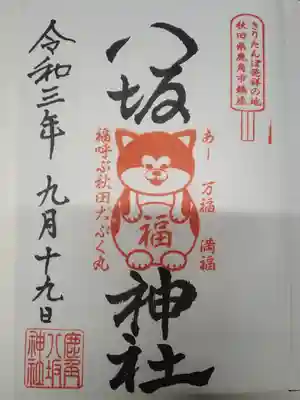 きりたんぽ発祥の地
秋田県鹿角市鎮座
八坂神社
あー 万福 満福
福
福呼ぶ秋田犬ふく丸
令和三年 九月十九日
鹿角
八坂
神社